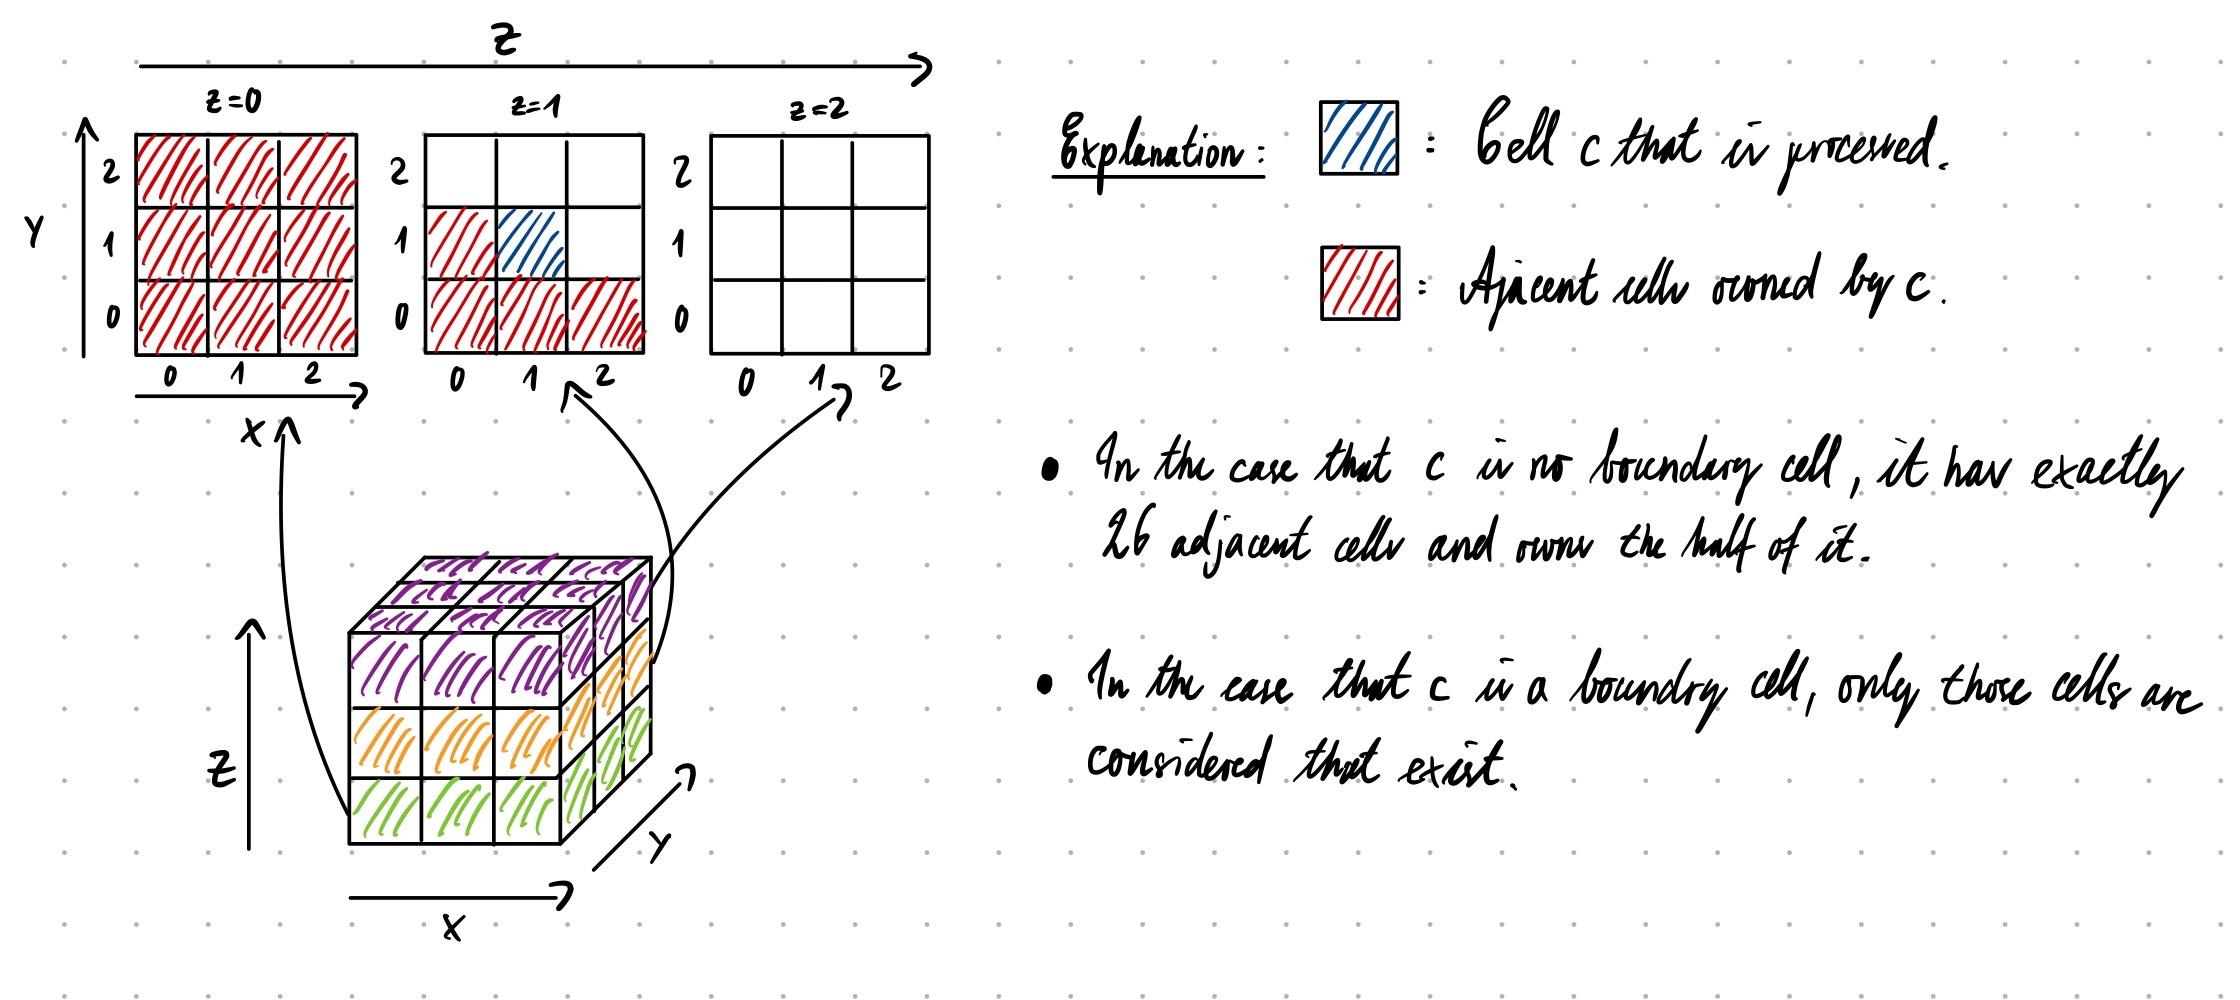 Z
z=0 z=1 z=2
Y
2 2 2
1 1 1
0 0 0
0 1 2 0 1 2 0 1 2
X
Z
Y
X
Explanation: : Cell c that is processed.
: Ajacent cells owned by c.
• In the case that c is no boundary cell, it has exactly
26 adjacent cells and owns the half of it.
• In the case that c is a boundry cell, only those cells are
considered that exist.